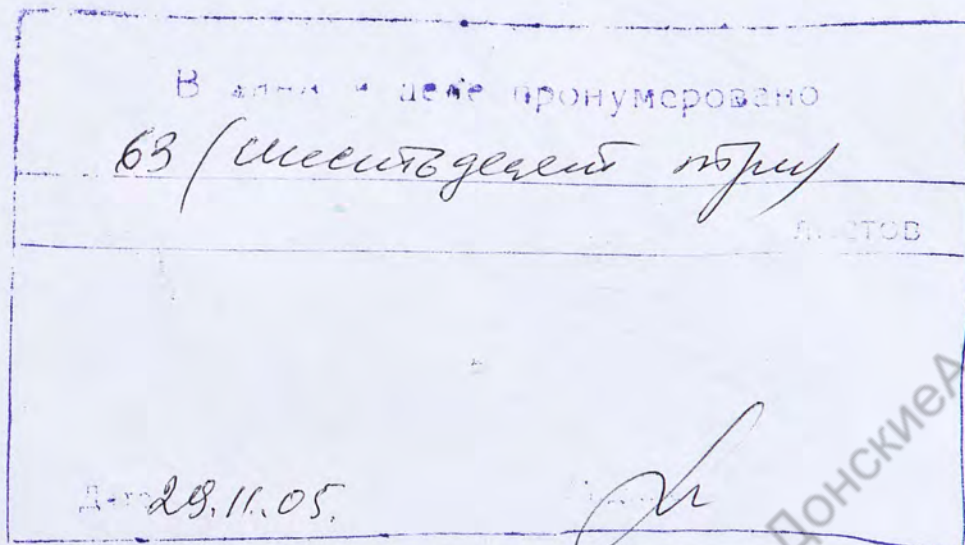 В данном деле пронумеровано
63 (шестьдесят три)
листов
Дата 29.11.05.
Донские